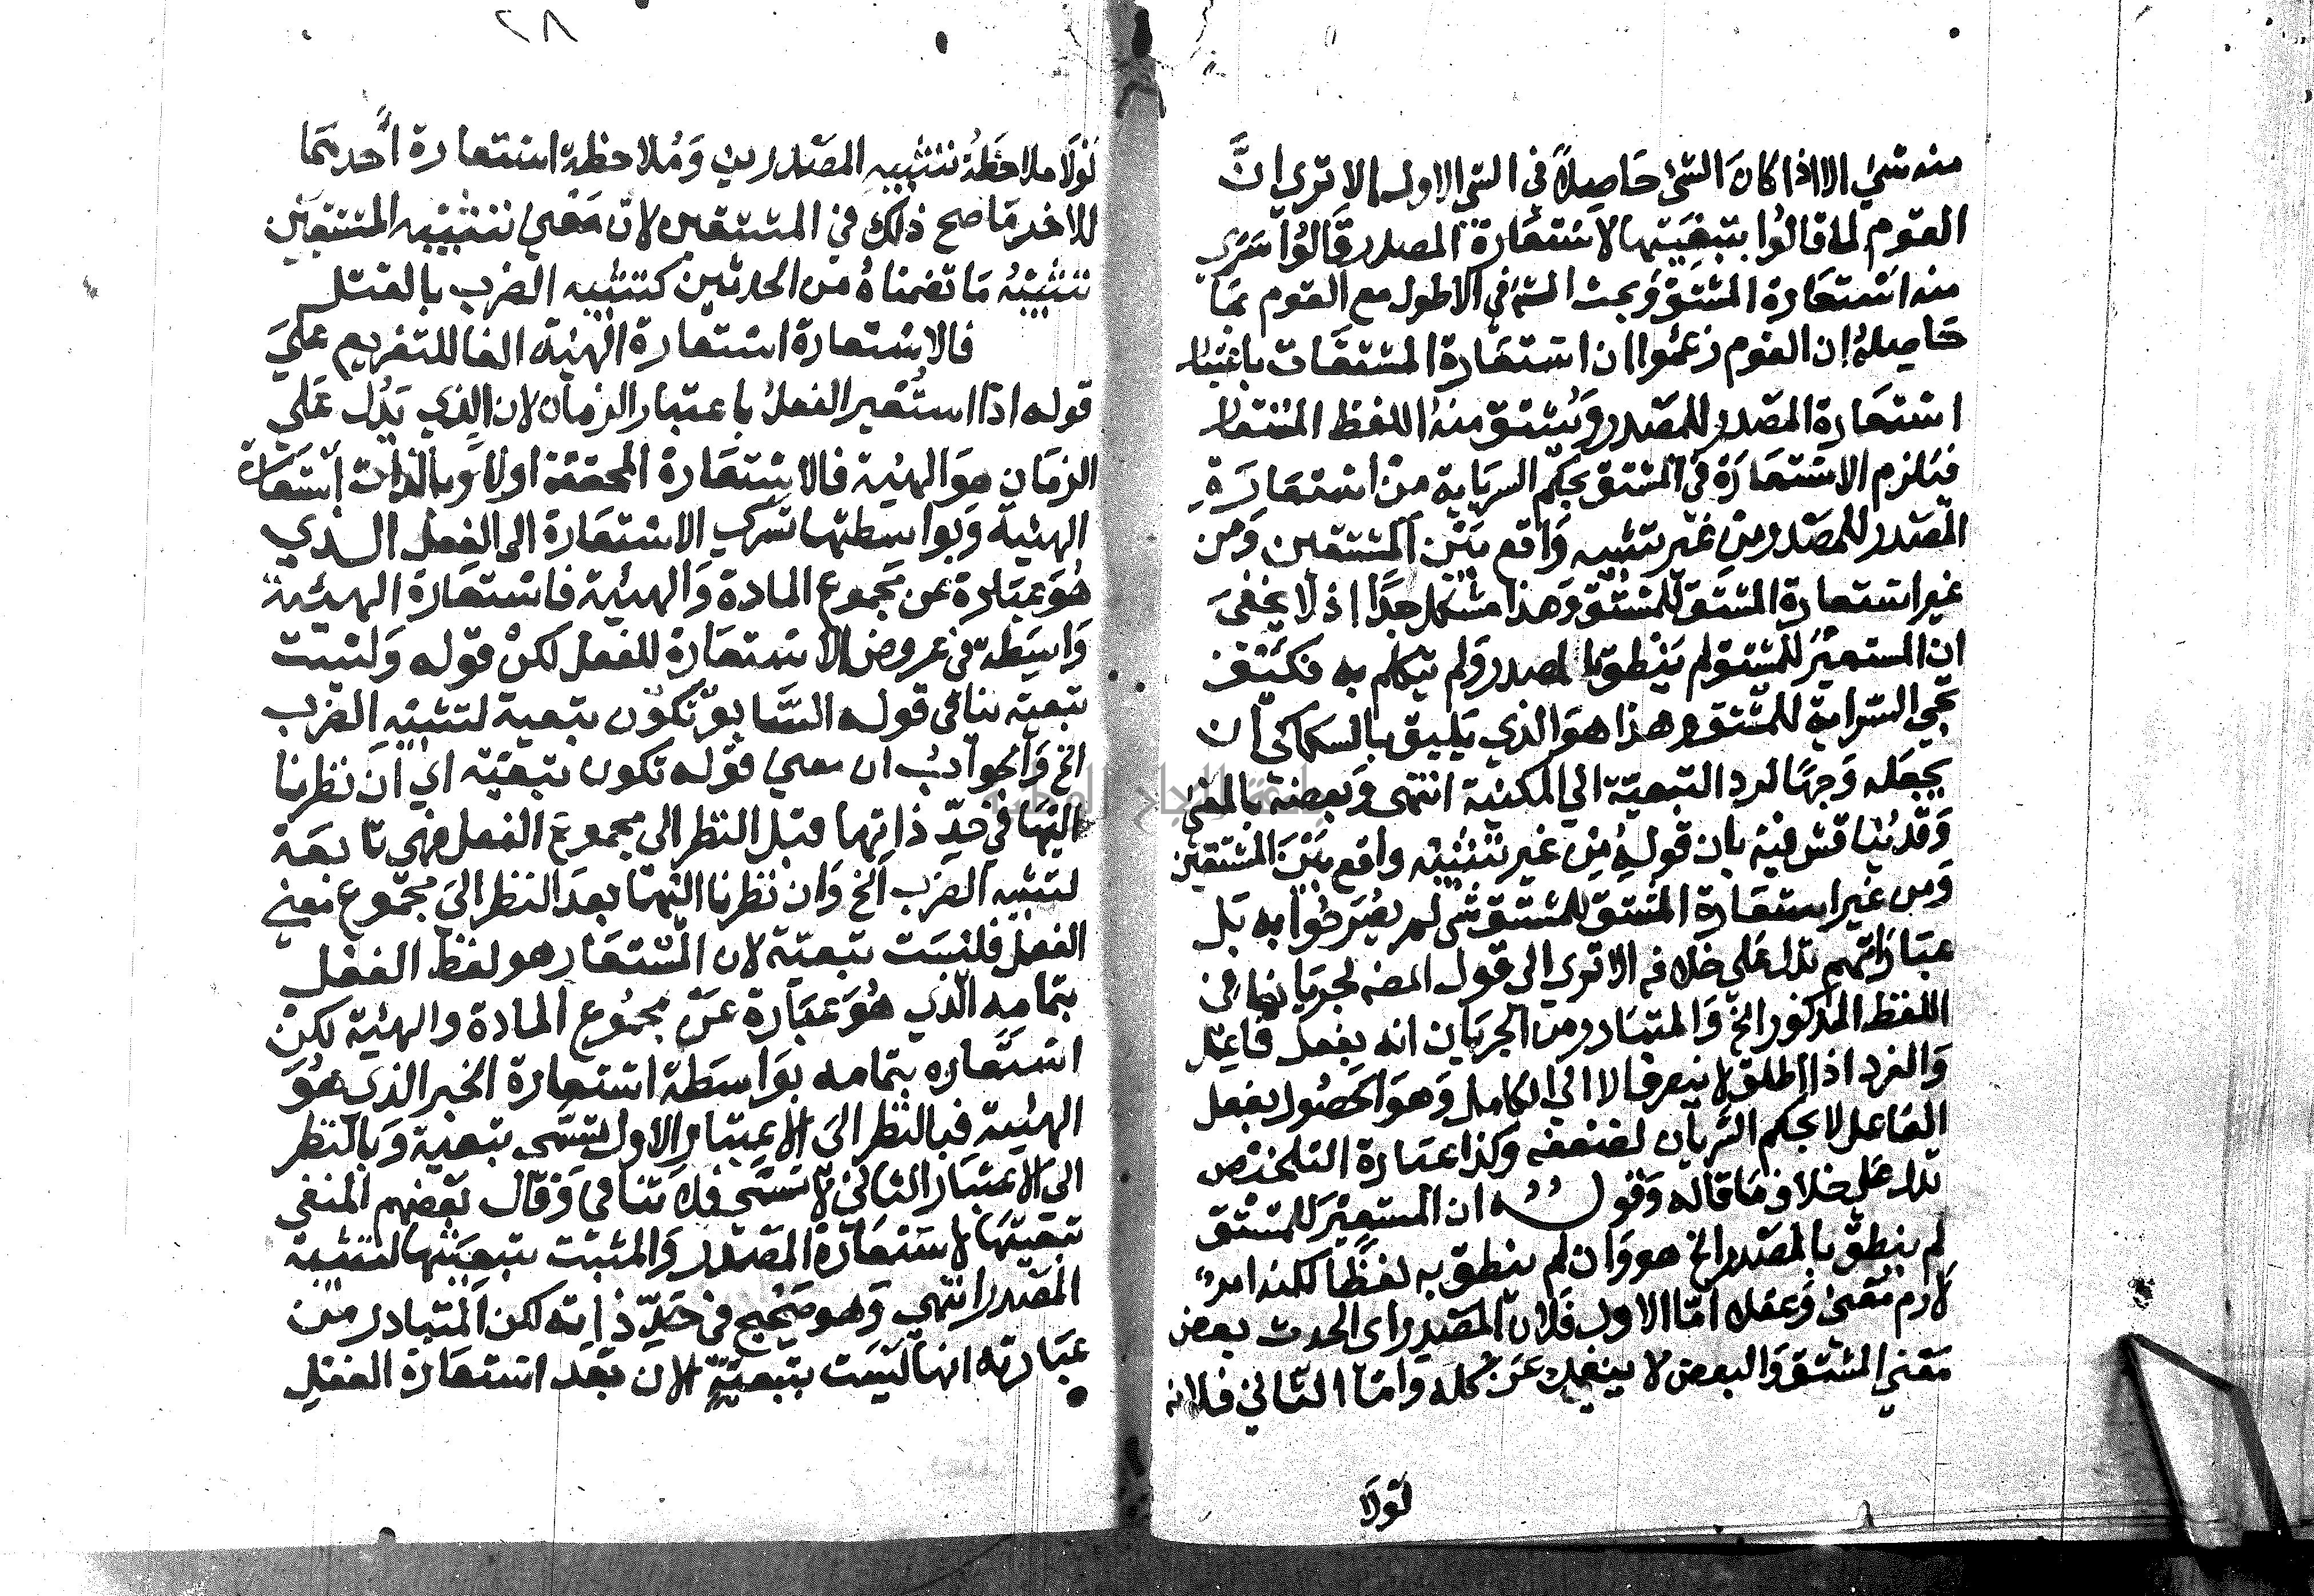 منه شيء الا اذا كان الشئ حَاصِلاً في الشي الاول الا تري انَّ
القوم لما قالوا بتبعيتها لاستعارة المصدر قَالوُا سَرَي
منه استعارة المشتق وَبحث المص في الاطول مع القوم بمَا
حَاصِلهُ ان القوم زعمُوا ان استعَارة المشتقات باعتبار
استعَارة المصَدر للمصَدر وَيُشتق منهُ اللفظ المُستعار
فيَلزم الاستعَارَة في المشتق بحكم السرَاية مِنْ استعَارَة
المصَدر للمصَدر مِن غير تشبيه وَاقع بَيْن المشتقين وَمن
غير استعارة المشتق للمشتق وَهذا مشكل جدًّا اذ لَا يخفَى
ان المستعيرَ للمشتق لم يَنْطق بالمصدر وَلم يتكلم به فكَيْف
تجي السّراية للمشتق وهذا هوَ الذي يَليق بالسكاكيّ ان
يجعَله وَجهًا لرد التبعيّة الي المكنية انتهى وَبعضه بالمعَنى
وَقد يُنَاقش فيه بان قولهُ مِن غير تشبيه واقع بَيْنَ المشتقين
وَمن غير استعارة المشتق للمشتق شى لم يُصَرحُوا به بَل
عبَاراتهم تدل عَلي خلافه الا تري الى قول المصه لجريَانها في
اللفظ المذكور الخ وَالمتبَادر من الجريَان انه بفعل فَاعِل
وَالفرد اذا اطلق لا ينصرف الا الي الكامل وَهوَ الحصُول بفعل
الفَاعل لا بحكم السّريان لضَعفه وكذا عبَارة التلخيص
تدل عَلي خلاف مَا قاله وَقولــــه ان المستعيرَ للمشتق
لم ينطق بالمصَدر الخ هو وَان لم ينطق به لفظًا لكنه امرٌ
لازم مَعَنى وَعقلا امّا الاول فلان المصَدر اى الحدث بعض
مَعَني المشتق وَالبعض لا ينفك عَن كله وامّا الثاني فلانه
لَولَا
٢٨
لَولَا ملاحَظَة تشبيه المصَدرين وَمُلاحظة استعارة أحدهمَا
للاخر مَا صح ذلك في المشتقين لانّ مَعَني تشبيه المشتقين
تشبيهُ مَا تضمناهُ من الحدثين كتشبيه الضرب بالقتل
فالاستعارة استعارة الهيئة الفا للتفريع علَي
قوله اذا استُعير الفعلُ باعتبار الزمان لان الذي يَدُل عَلي
الزمَان هوَ الهيئة فالاستعَارة المحققة اولاً وبالذات استعَارة
الهيئة وَبواسطتها تسري الاستعَارة الى الفعل الــذي
هُوَ عبَارة عن مجموع المادة وَالهيئة فاستعَارة الهيئية
وَاسِطة في عروض الاستعَارة للفعل لكنْ قوله وَليست
تبعية ينافى قوله السّابق تكون تبعية لتشبيه الضرب
الخ وَالجوابُ ان معنى قوله تكون تبعيّة اي ان نظرنا
اليهَا في حدّ ذاتها قبل النظر الي مجموع الفعل فهي تابعَة
لتشبيه الضرَب الخ وَان نظرنا اليهَا بعدَ النظر اليَ مجمُوع مَعني
الفعل فليسَت تبعيّة لان المُستعَار هو لفظ الفعل
بتمامه الّذي هُوَ عبَارة عَنْ مجمُوع المادة والهيئة لكنْ
استعَاره بتمامه بوَاسطة استعارة الخبر الذى هُوَ
الهيئية فبالنظر اليَ الاعتبار الاول تسَمّى تبعية وَبالنظر
الي الاعتبَار الثاني لا تسَمّى فلا تنافي وَقال بعَضهم المنفي
تبعَيتهَا لاستعَارة المصَدر وَالمثبت بتبعيَتها لتشبيه
المصَدر انتهى وَهو صَحيح في حَدّ ذاته لكن المتبادر من
عبَارته انها لَيْسَت بتبعيّة لان بَعَد استعَارة الفعل